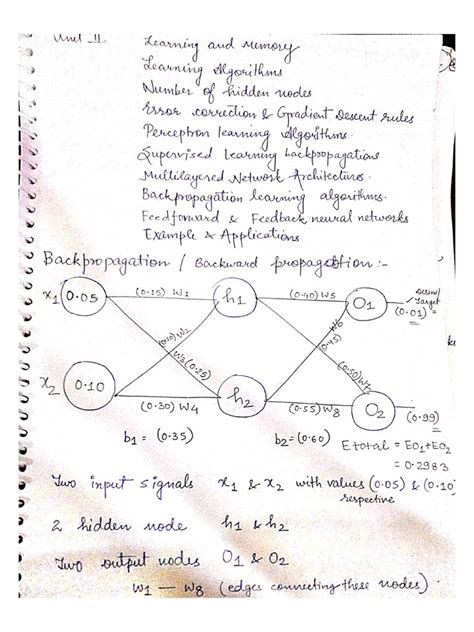 Unit II
Learning and Memory
Learning Algorithms
Number of hidden nodes
Error correction & Gradient Descent rules
Perceptron learning Algorithms.
Supervised Learning backpropagations
Multilayered Network Architectures.
Backpropagation learning algorithms.
Feedforward & Feedback neural networks
Example & Applications
Backpropagation / Backward propagation :-
x1 0.05 (0.15) W1 h1 (0.40) W5 O1 Target (0.01)
(0.20) W2 W6 (0.45)
W3 (0.25) (0.50) W7
x2 0.10 (0.30) W4 h2 (0.55) W8 O2 (0.99)
b1 = (0.35) b2 = (0.60) E total = EO1 + EO2
= 0.2983
Two input signals x1 & x2 with values (0.05) & (0.10)
respective
2 hidden node h1 & h2
Two output nodes O1 & O2
W1 — W8 (edges connecting these nodes)